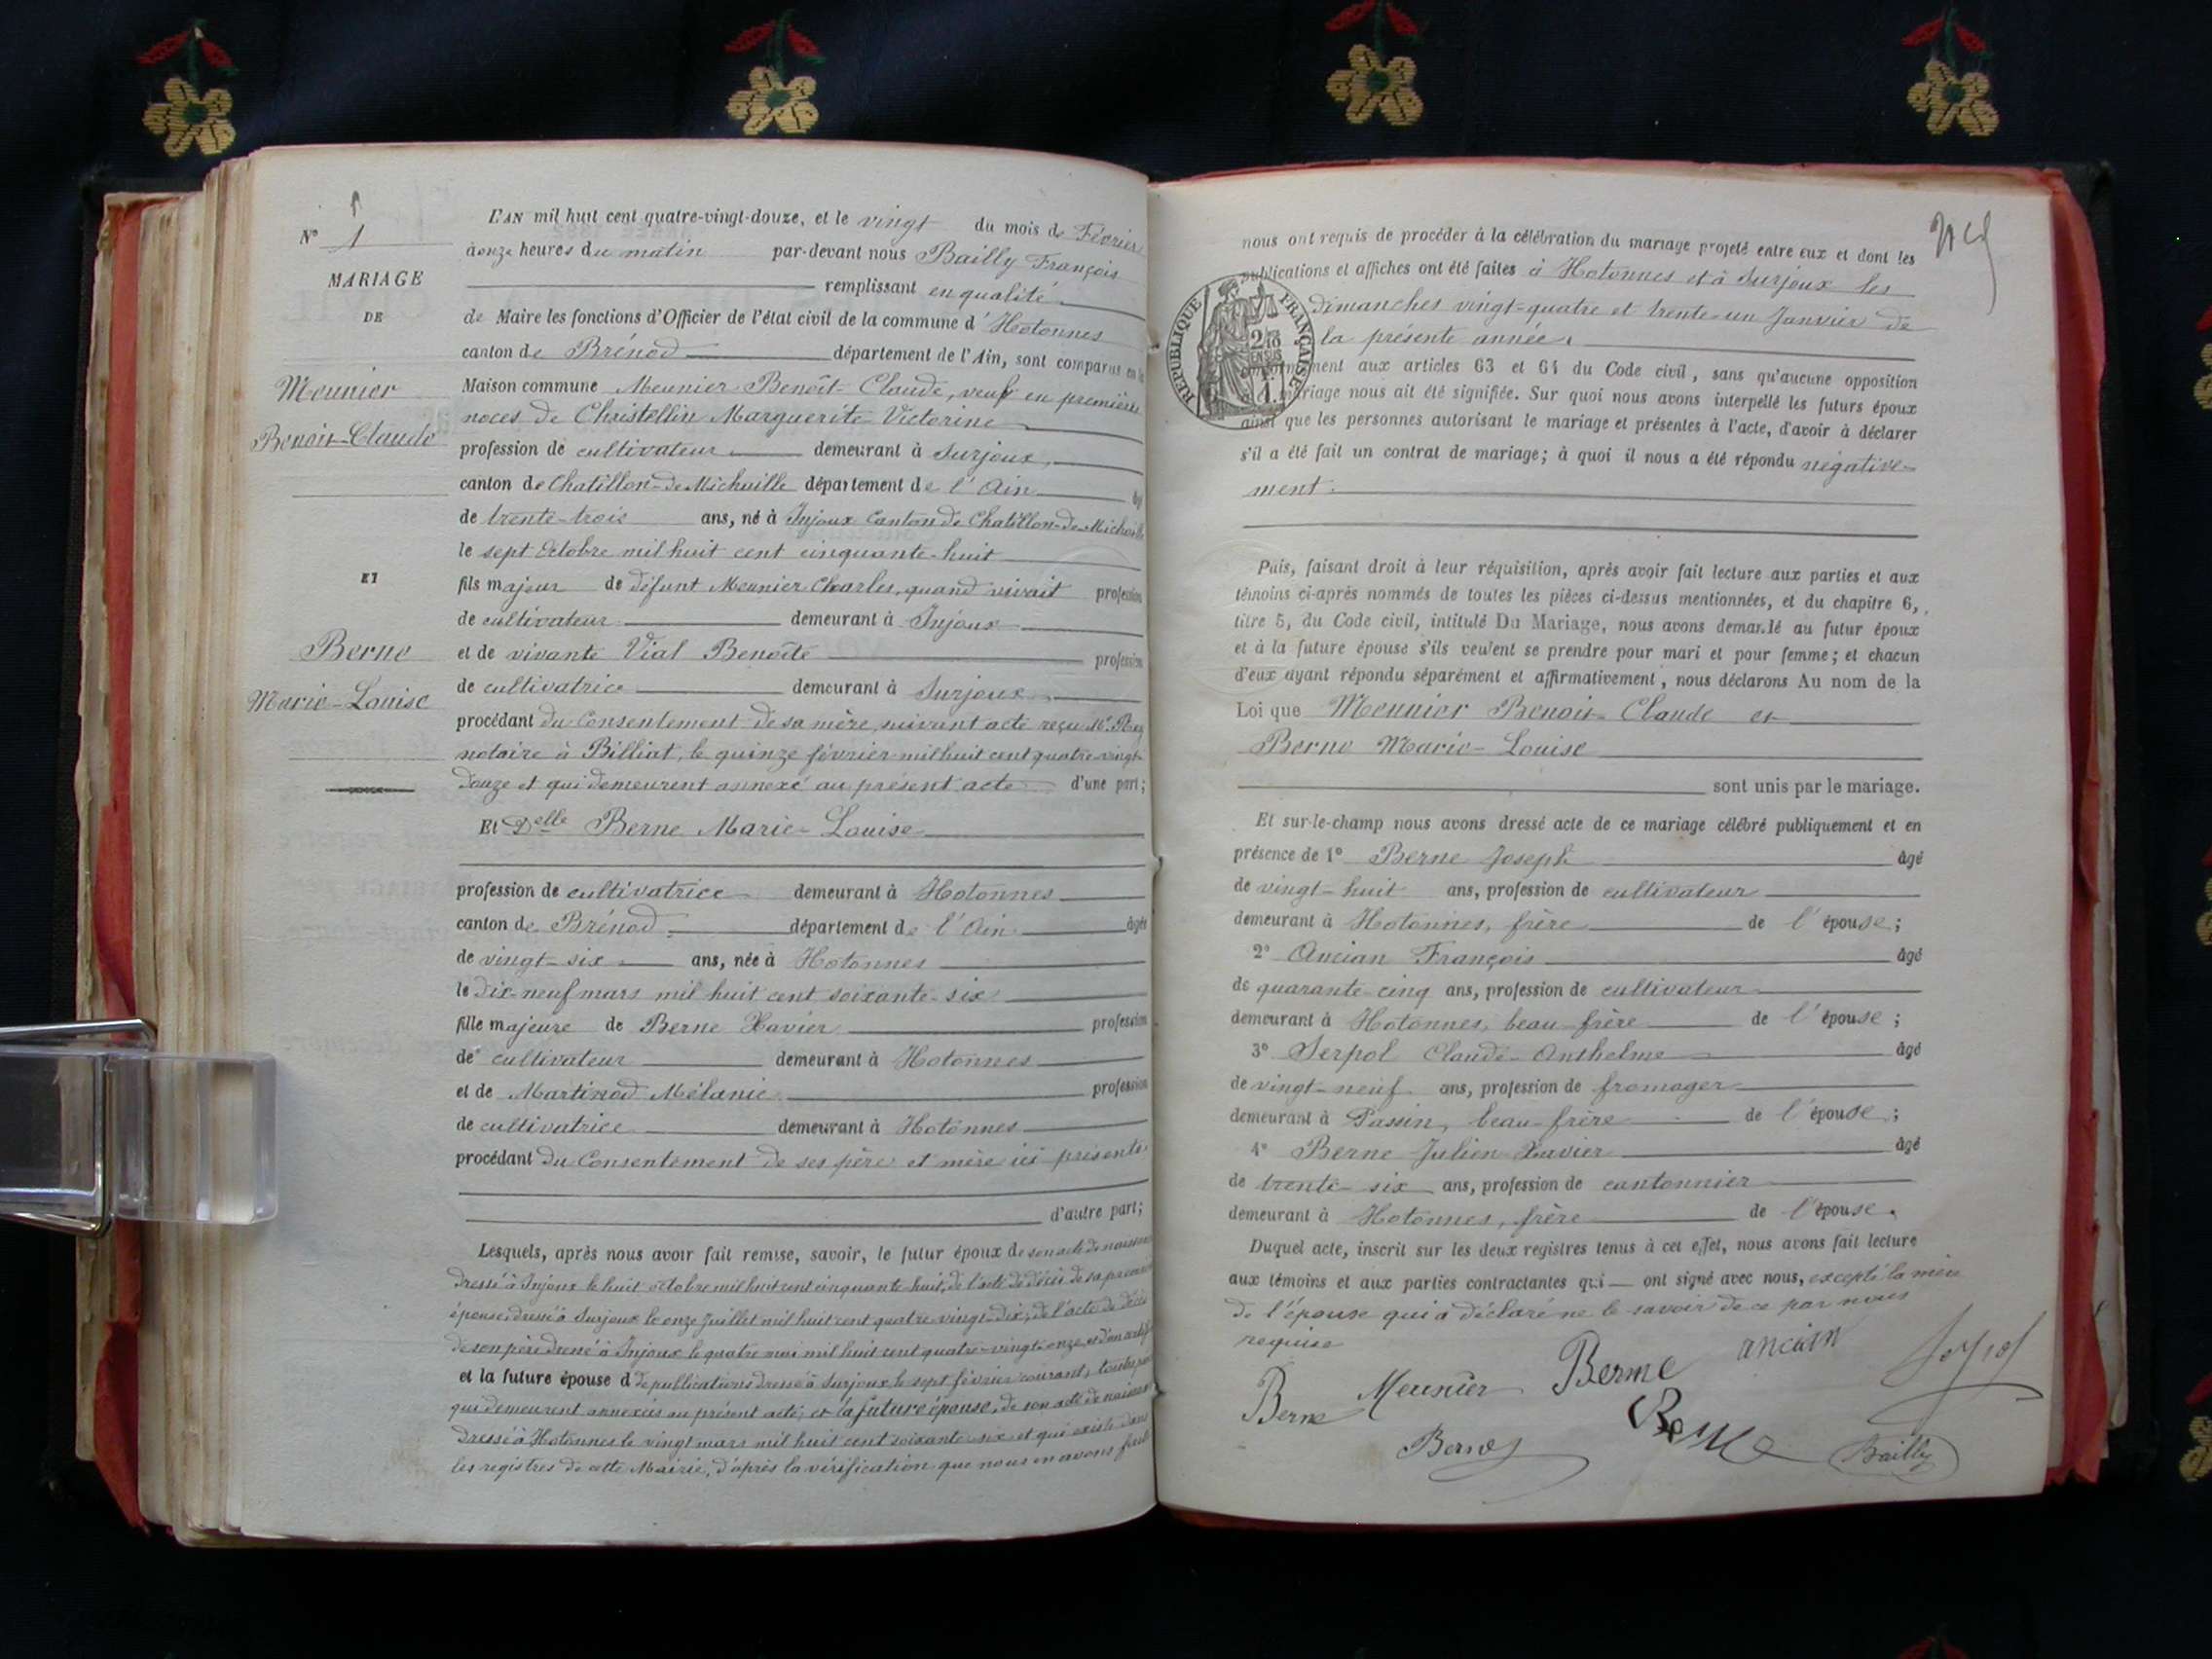 N° 1
MARIAGE
DE
Meunier
Benoit-Claude
ET
Berne
Marie-Louise
L'AN mil huit cent quatre-vingt-douze, et le vingt du mois de Février
à onze heures du matin par-devant nous Bailly François
remplissant en qualité
de Maire les fonctions d'Officier de l'état civil de la commune d'Hotonnes
canton de Brénod département de l'Ain, sont comparus en la
Maison commune Meunier Benoît-Claude, veuf en premières
noces de Christellin Marguerite Victorine
profession de cultivateur demeurant à Surjoux
canton de Chatillon-de-Michaille département de l'Ain âgé
de trente-trois ans, né à Injoux Canton de Chatillon-de-Michaille
le sept Octobre mil huit cent cinquante-huit
fils majeur de défunt Meunier Charles, quand vivait profession
de cultivateur demeurant à Injoux
et de vivante Vial Benoîte profession
de cultivatrice demeurant à Surjoux
procédant du Consentement de sa mère, suivant acte reçu Me.
notaire à Billiat, le quinze février mil huit cent quatre-vingt-
douze et qui demeurent annexé au présent acte d'une part;
Et Delle Berne Marie-Louise
profession de cultivatrice demeurant à Hotonnes
canton de Brénod département de l'Ain âgée
de vingt-six ans, née à Hotonnes
le dix-neuf mars mil huit cent soixante-six
fille majeure de Berne Xavier profession
de cultivateur demeurant à Hotonnes
et de Martinod Mélanie profession
de cultivatrice demeurant à Hotonnes
procédant du Consentement de ses père et mère ici présents
d'autre part;
Lesquels, après nous avoir fait remise, savoir, le futur époux de son acte de naissance
dressé à Injoux le huit octobre mil huit cent cinquante-huit, de l'acte de décès de sa première
épouse, dressé à Surjoux le onze Juillet mil huit cent quatre-vingt-dix, de l'acte de décès
de son père dressé à Injoux le quatre mai mil huit cent quatre-vingt-onze, et d'un certificat
et la future épouse d de publications dressé à Surjoux le sept février courant, toutes
qui demeurent annexées au présent acte; et la future épouse, de son acte de naissance
dressé à Hotonnes le vingt mars mil huit cent soixante-six et qui existe dans
les registres de cette Mairie, d'après la vérification que nous en avons faite
nous ont requis de procéder à la célébration du mariage projeté entre eux et dont les
publications et affiches ont été faites à Hotonnes et à Surjoux les
dimanches vingt-quatre et trente-un Janvier de
la présente année.
RÉPUBLIQUE FRANÇAISE
conformément aux articles 63 et 64 du Code civil, sans qu'aucune opposition
mariage nous ait été signifiée. Sur quoi nous avons interpellé les futurs époux
ainsi que les personnes autorisant le mariage et présentes à l'acte, d'avoir à déclarer
s'il a été fait un contrat de mariage; à quoi il nous a été répondu négative-
ment.
Puis, faisant droit à leur réquisition, après avoir fait lecture aux parties et aux
témoins ci-après nommés de toutes les pièces ci-dessus mentionnées, et du chapitre 6,
titre 5, du Code civil, intitulé Du Mariage, nous avons demandé au futur époux
et à la future épouse s'ils veulent se prendre pour mari et pour femme; et chacun
d'eux ayant répondu séparément et affirmativement, nous déclarons Au nom de la
Loi que Meunier Benoit-Claude et
Berne Marie-Louise
sont unis par le mariage.
Et sur-le-champ nous avons dressé acte de ce mariage célébré publiquement et en
présence de 1° Berne Joseph âgé
de vingt-huit ans, profession de cultivateur
demeurant à Hotonnes, frère de l'épouse;
2° Ancian François âgé
de quarante-cinq ans, profession de cultivateur
demeurant à Hotonnes, beau-frère de l'épouse;
3° Serpol Claude-Anthelme âgé
de vingt-neuf ans, profession de fromager
demeurant à Passin, beau-frère de l'épouse;
4° Berne Julien Xavier âgé
de trente-six ans, profession de cantonnier
demeurant à Hotonnes, frère de l'épouse.
Duquel acte, inscrit sur les deux registres tenus à cet effet, nous avons fait lecture
aux témoins et aux parties contractantes qui ont signé avec nous, excepté la mère
de l'épouse qui a déclaré ne le savoir de ce par nous
requise
Berne Meunier Berne ancian Serpol
Berne Berne Bailly